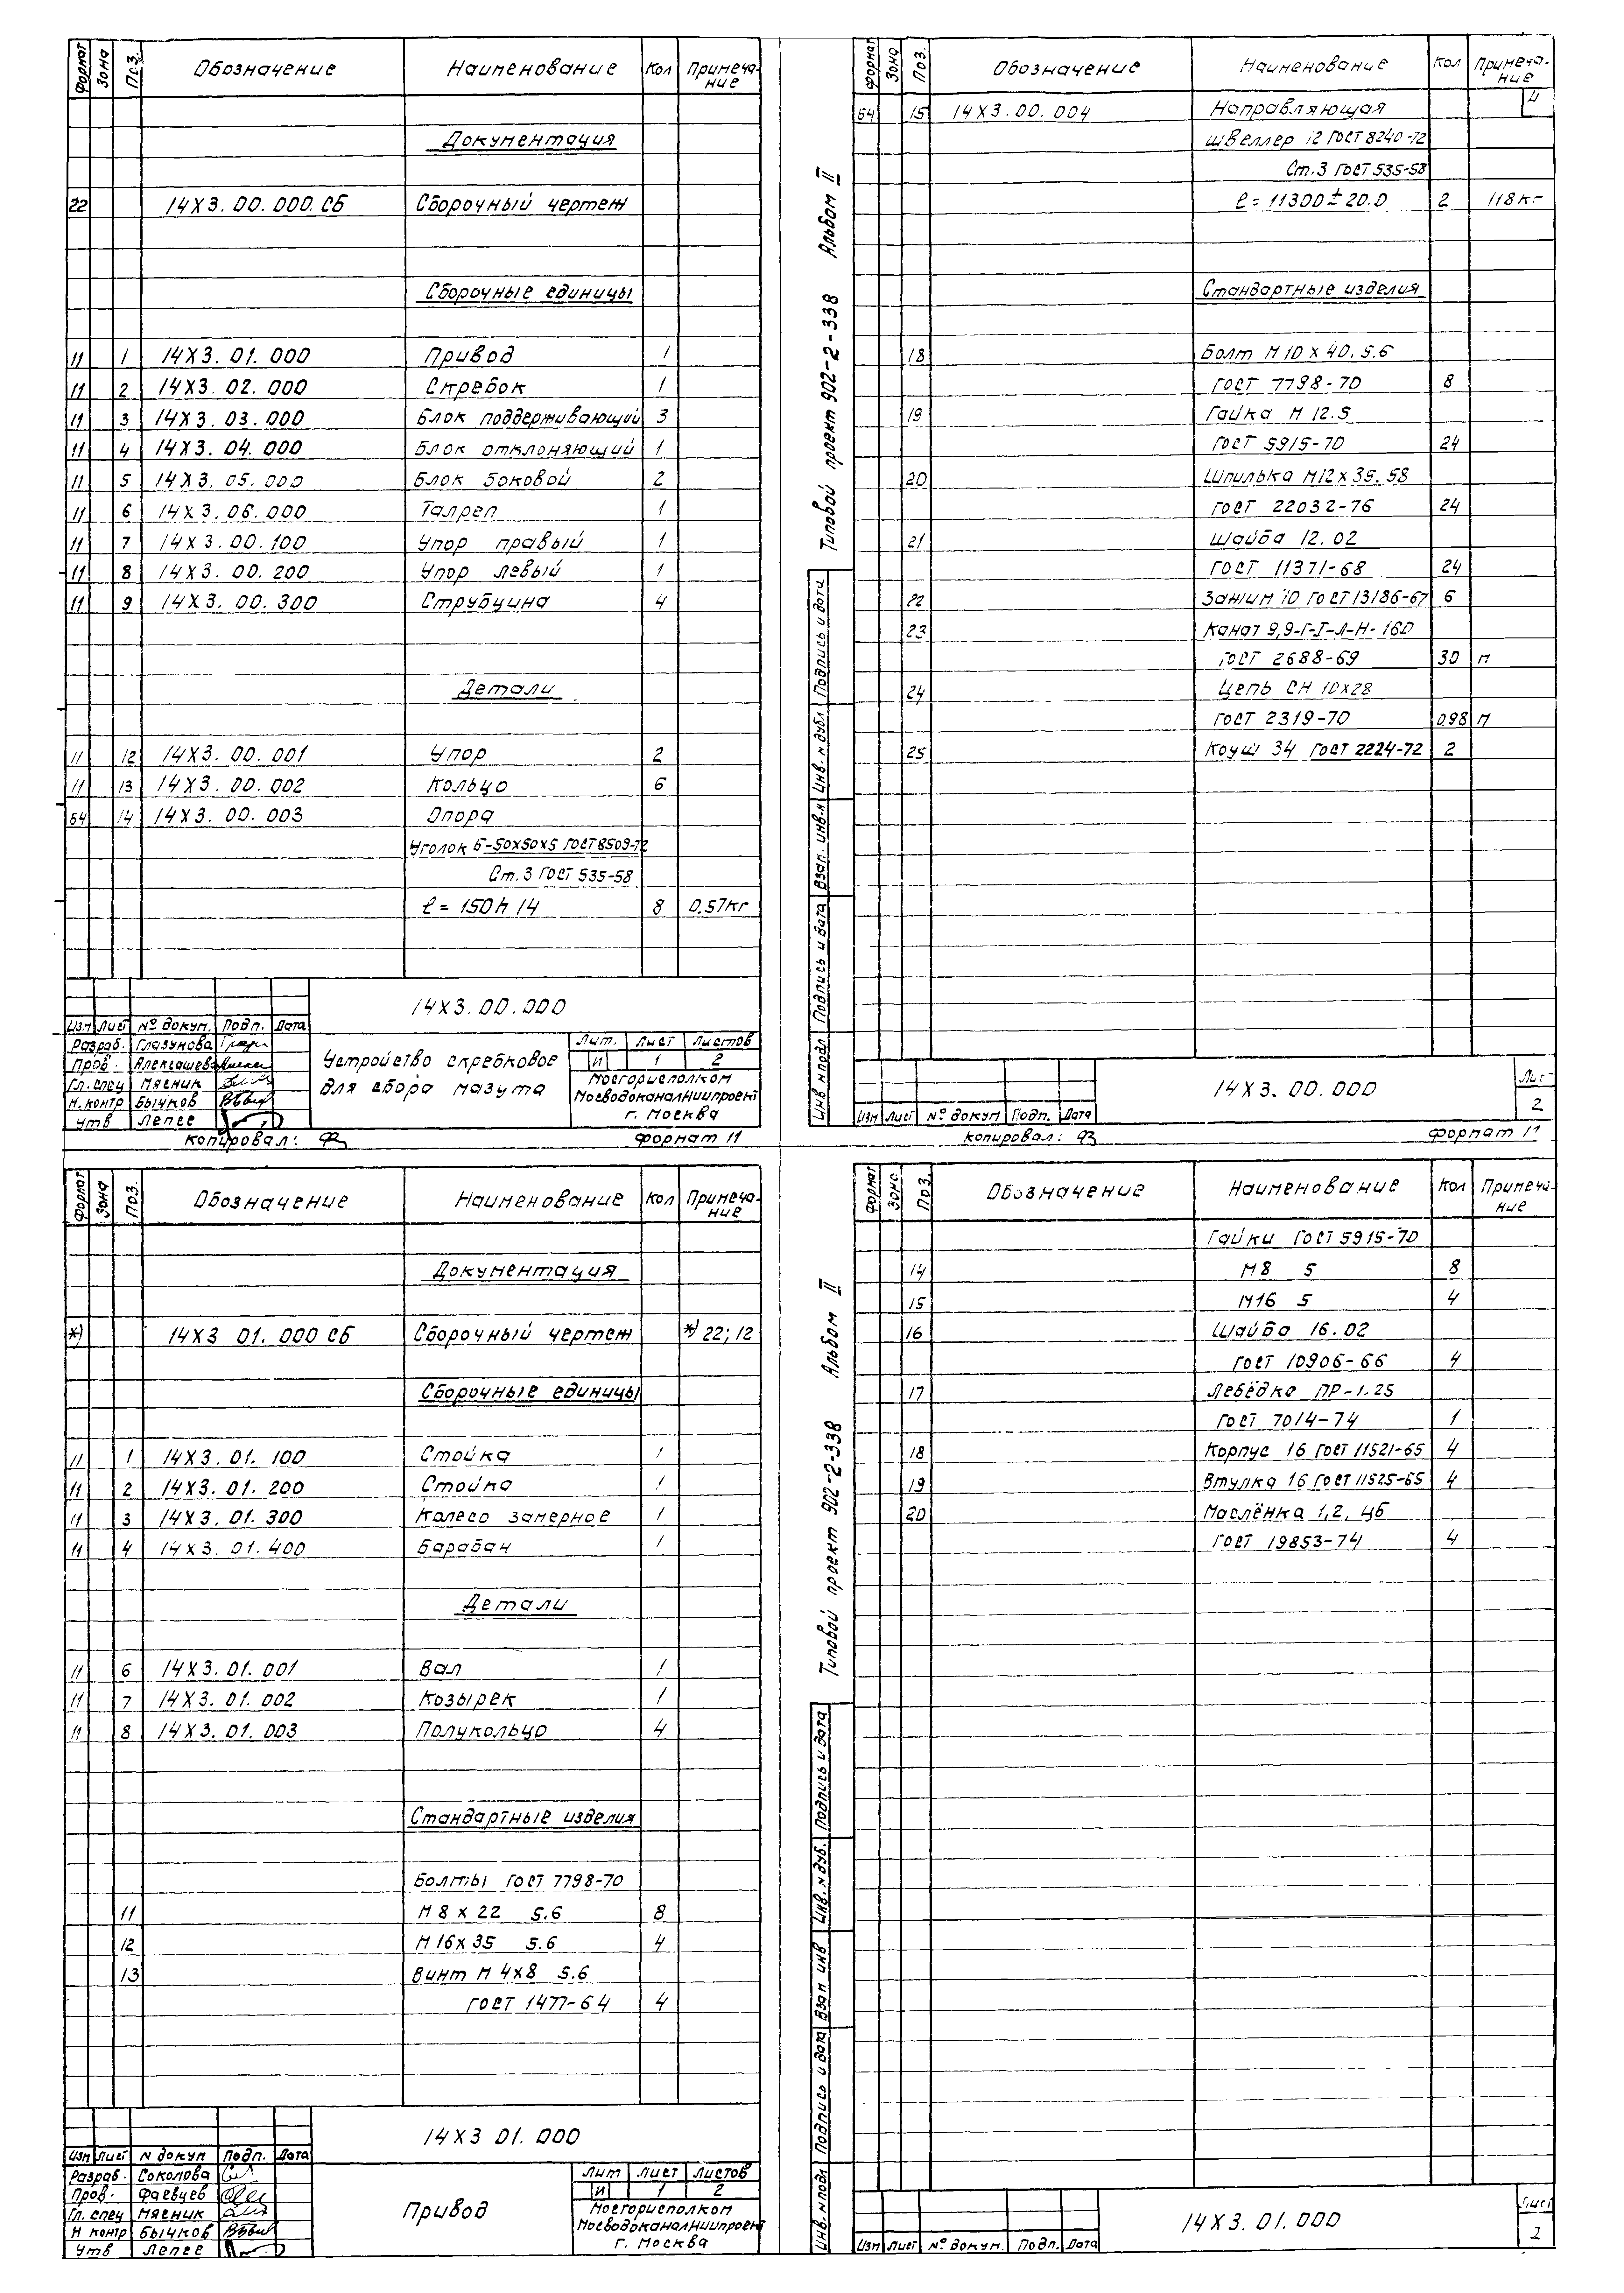 Формат Зона Поз. Обозначение Наименование Кол Примеча-
ние
Документация
22 14Х3.00.000.СБ Сборочный чертеж
Сборочные единицы
11 1 14Х3.01.000 Привод 1
11 2 14Х3.02.000 Скребок 1
11 3 14Х3.03.000 Блок поддерживающий 3
11 4 14Х3.04.000 Блок отклоняющий 1
11 5 14Х3.05.000 Блок боковой 2
11 6 14Х3.06.000 Талреп 1
11 7 14Х3.00.100 Упор правый 1
11 8 14Х3.00.200 Упор левый 1
11 9 14Х3.00.300 Струбцина 4
Детали
11 12 14Х3.00.001 Упор 2
11 13 14Х3.00.002 Кольцо 6
Б4 14 14Х3.00.003 Опора
Уголок Б-50х50х5 ГОСТ 8509-72
Ст.3 ГОСТ 535-58
ℓ = 150h14 8 0.57кг
14Х3.00.000
Изм Лист № докум. Подп. Дата
Разраб. Глазунова
Пров. Алексашева
Гл.спец Мясник
Н.контр Бычков
Утв Лепес
Устройство скребковое
для сбора мазута
Лит. Лист Листов
И 1 2
Мосгорисполком
Мосводоканалниипроект
г. Москва
Копировал: Формат 11
Типовой проект 902-2-338 Альбом II
Инв № подл Подпись и дата Взап. инв. № Инв. № дубл Подпись и дата
Формат Зона Поз. Обозначение Наименование Кол Примеча-
ние
4
Б4 15 14Х3.00.004 Направляющая
Швеллер 12 ГОСТ 8240-72
Ст.3 ГОСТ 535-58
ℓ = 11300±20.0 2 118кг
Стандартные изделия
18 Болт М10х40.5.6
ГОСТ 7798-70 8
19 Гайка М 12.5
ГОСТ 5915-70 24
20 Шпилька М12х35.58
ГОСТ 22032-76 24
21 Шайба 12.02
ГОСТ 11371-68 24
22 Зажим 10 ГОСТ 13186-67 6
23 Канат 9,9-Г-I-Л-Н-160
ГОСТ 2688-69 30 м
24 Цепь СН 10х28
ГОСТ 2319-70 0.98 м
25 Коуш 34 ГОСТ 2224-72 2
Изм Лист № докум Подп. Дата
14Х3.00.000
Лист
2
Копировал: Формат 11
Формат Зона Поз. Обозначение Наименование Кол Примеча-
ние
Документация
*) 14Х3 01.000 СБ Сборочный чертеж *) 22; 12
Сборочные единицы
11 1 14Х3.01.100 Стойка 1
11 2 14Х3.01.200 Стойка 1
11 3 14Х3.01.300 Колесо замерное 1
11 4 14Х3.01.400 Барабан 1
Детали
11 6 14Х3.01.001 Вал 1
11 7 14Х3.01.002 Козырек 1
11 8 14Х3.01.003 Полукольцо 4
Стандартные изделия
Болты ГОСТ 7798-70
11 М 8 х 22 5.6 8
12 М 16х35 5.6 4
13 Винт М 4х8 5.6
ГОСТ 1477-64 4
14Х3 01.000
Изм Лист № докум Подп. Дата
Разраб. Соколова
Пров. Фаевцев
Гл. спец Мясник
Н контр Бычков
Утв Лепес
Привод
Лит Лист Листов
И 1 2
Мосгорисполком
Мосводоканалниипроект
г. Москва
Типовой проект 902-2-338 Альбом II
Инв. № подл Подпись и дата Взам инв Инв. № дуб. Подпись и дата
Формат Зона Поз. Обозначение Наименование Кол Примеча-
ние
Гайки ГОСТ 5915-70
14 М8 5 8
15 М16 5 4
16 Шайба 16.02
ГОСТ 10906-66 4
17 Лебёдка ПР-1.25
ГОСТ 7014-74 1
18 Корпус 16 ГОСТ 11521-65 4
19 Втулка 16 ГОСТ 11525-65 4
20 Маслёнка 1,2, Ц6
ГОСТ 19853-74 4
Изм Лист № докум. Подп. Дата
14Х3.01.000
Лист
2